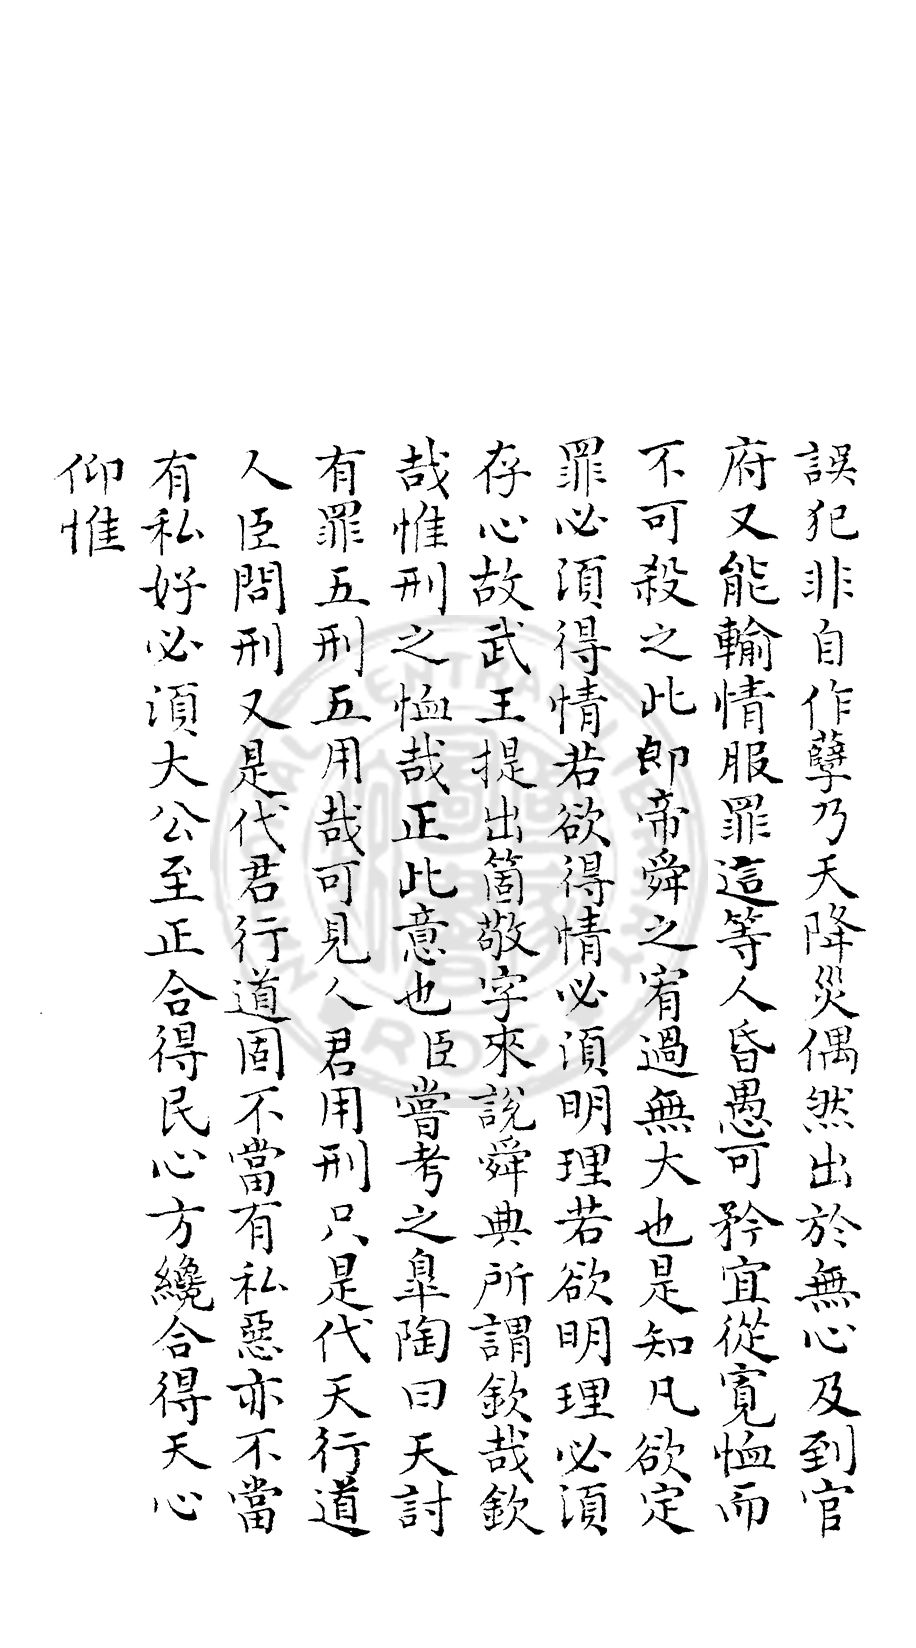 誤犯非自作孽乃天降災偶然出於無心及到官
府又能輸情服罪這等人昏愚可矜宜從寬恤而
不可殺之此即帝舜之宥過無大也是知凡欲定
罪必須得情若欲得情必須明理若欲明理必須
存心故武王提出箇敬字來說舜典所謂欽哉欽
哉惟刑之恤哉正此意也臣嘗考之臯陶曰天討
有罪五刑五用哉可見人君用刑只是代天行道
人臣問刑又是代君行道固不當有私惡亦不當
有私好必須大公至正合得民心方纔合得天心
仰惟